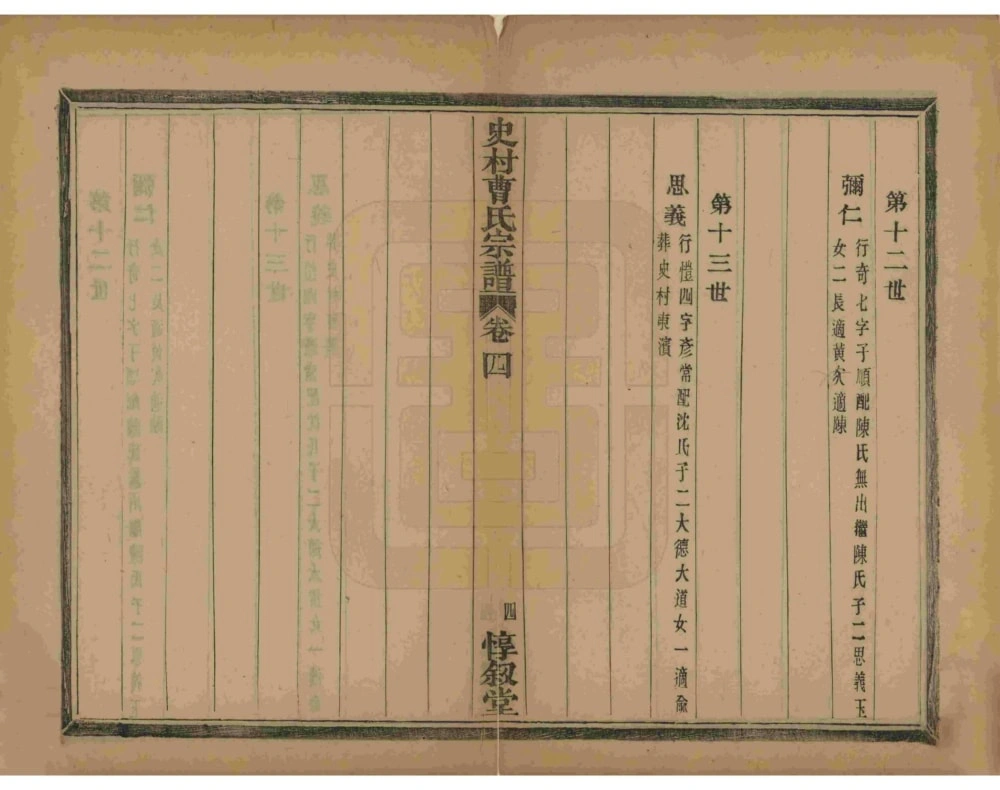 第十二世
彌仁
行奇七字子順配陳氏無出繼陳氏子二思義玉
女二長適黄次適陳
第十三世
思義
行愷四字彥常配沈氏子二大德大道女一適俞
葬史村東濱
史村曹氏宗譜
卷四
四
惇敘堂